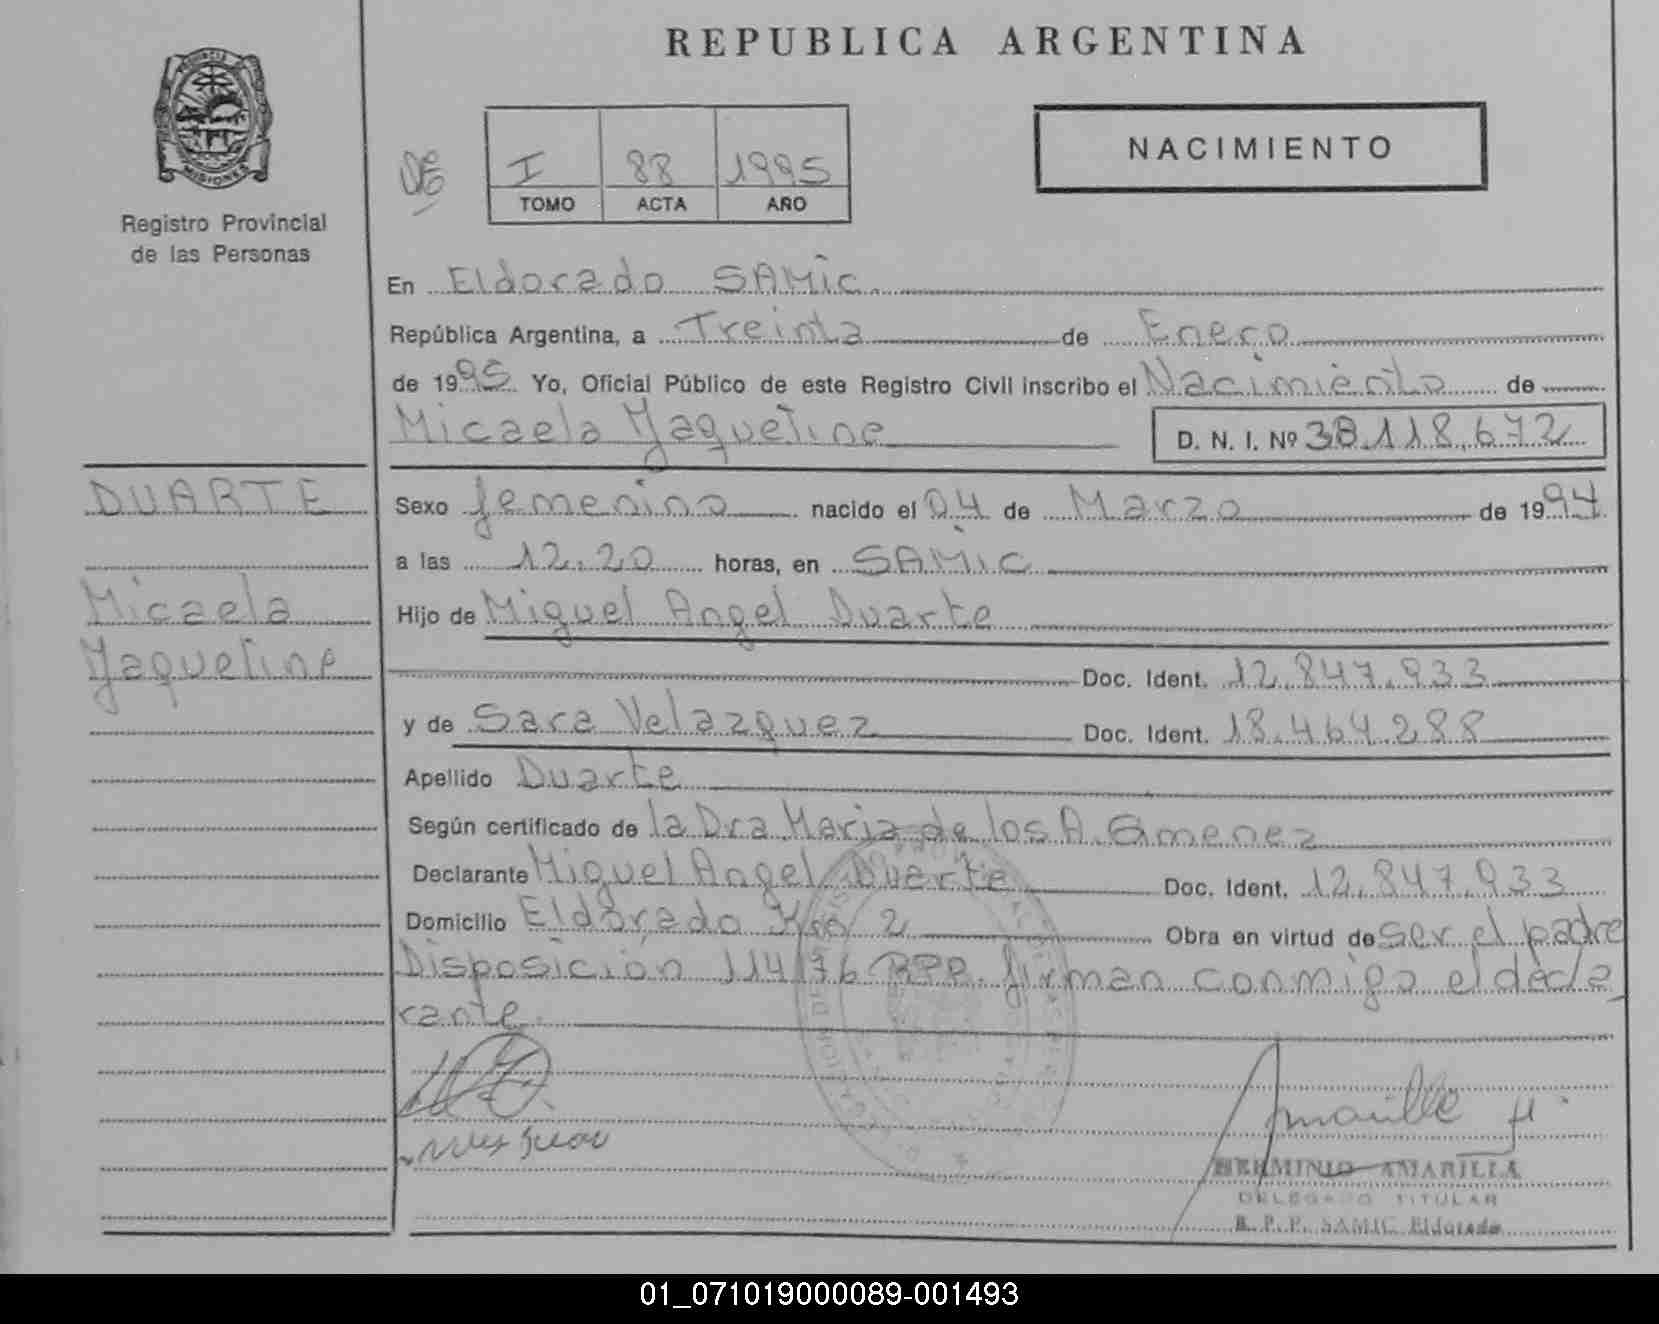 REPUBLICA ARGENTINA
MISIONES
Registro Provincial
de las Personas
DE
I 88 1995
TOMO ACTA AÑO
NACIMIENTO
En Eldorado SAMIC
República Argentina, a Treinta de Enero
de 1995 Yo, Oficial Público de este Registro Civil inscribo el Nacimiento de
Micaela Yaqueline
D. N. I. Nº 38.118.672
DUARTE
Micaela
Yaqueline
Sexo femenino nacido el 04 de Marzo de 1994
a las 12.20 horas, en SAMIC
Hijo de Miguel Angel Duarte
Doc. Ident. 12.847.933
y de Sara Velazquez Doc. Ident. 18.464.288
Apellido Duarte
Según certificado de la Dra Maria de los A. Gimenez
Declarante Miguel Angel Duarte Doc. Ident. 12.847.933
Domicilio Eldorado Km 2 Obra en virtud de ser el padre
Disposición 114/76 RPP. firman conmigo el decla
rante.
Amarilla H.
HERMINIO AMARILLA
DELEGADO TITULAR
R. P. P. SAMIC Eldorado
01_071019000089-001493